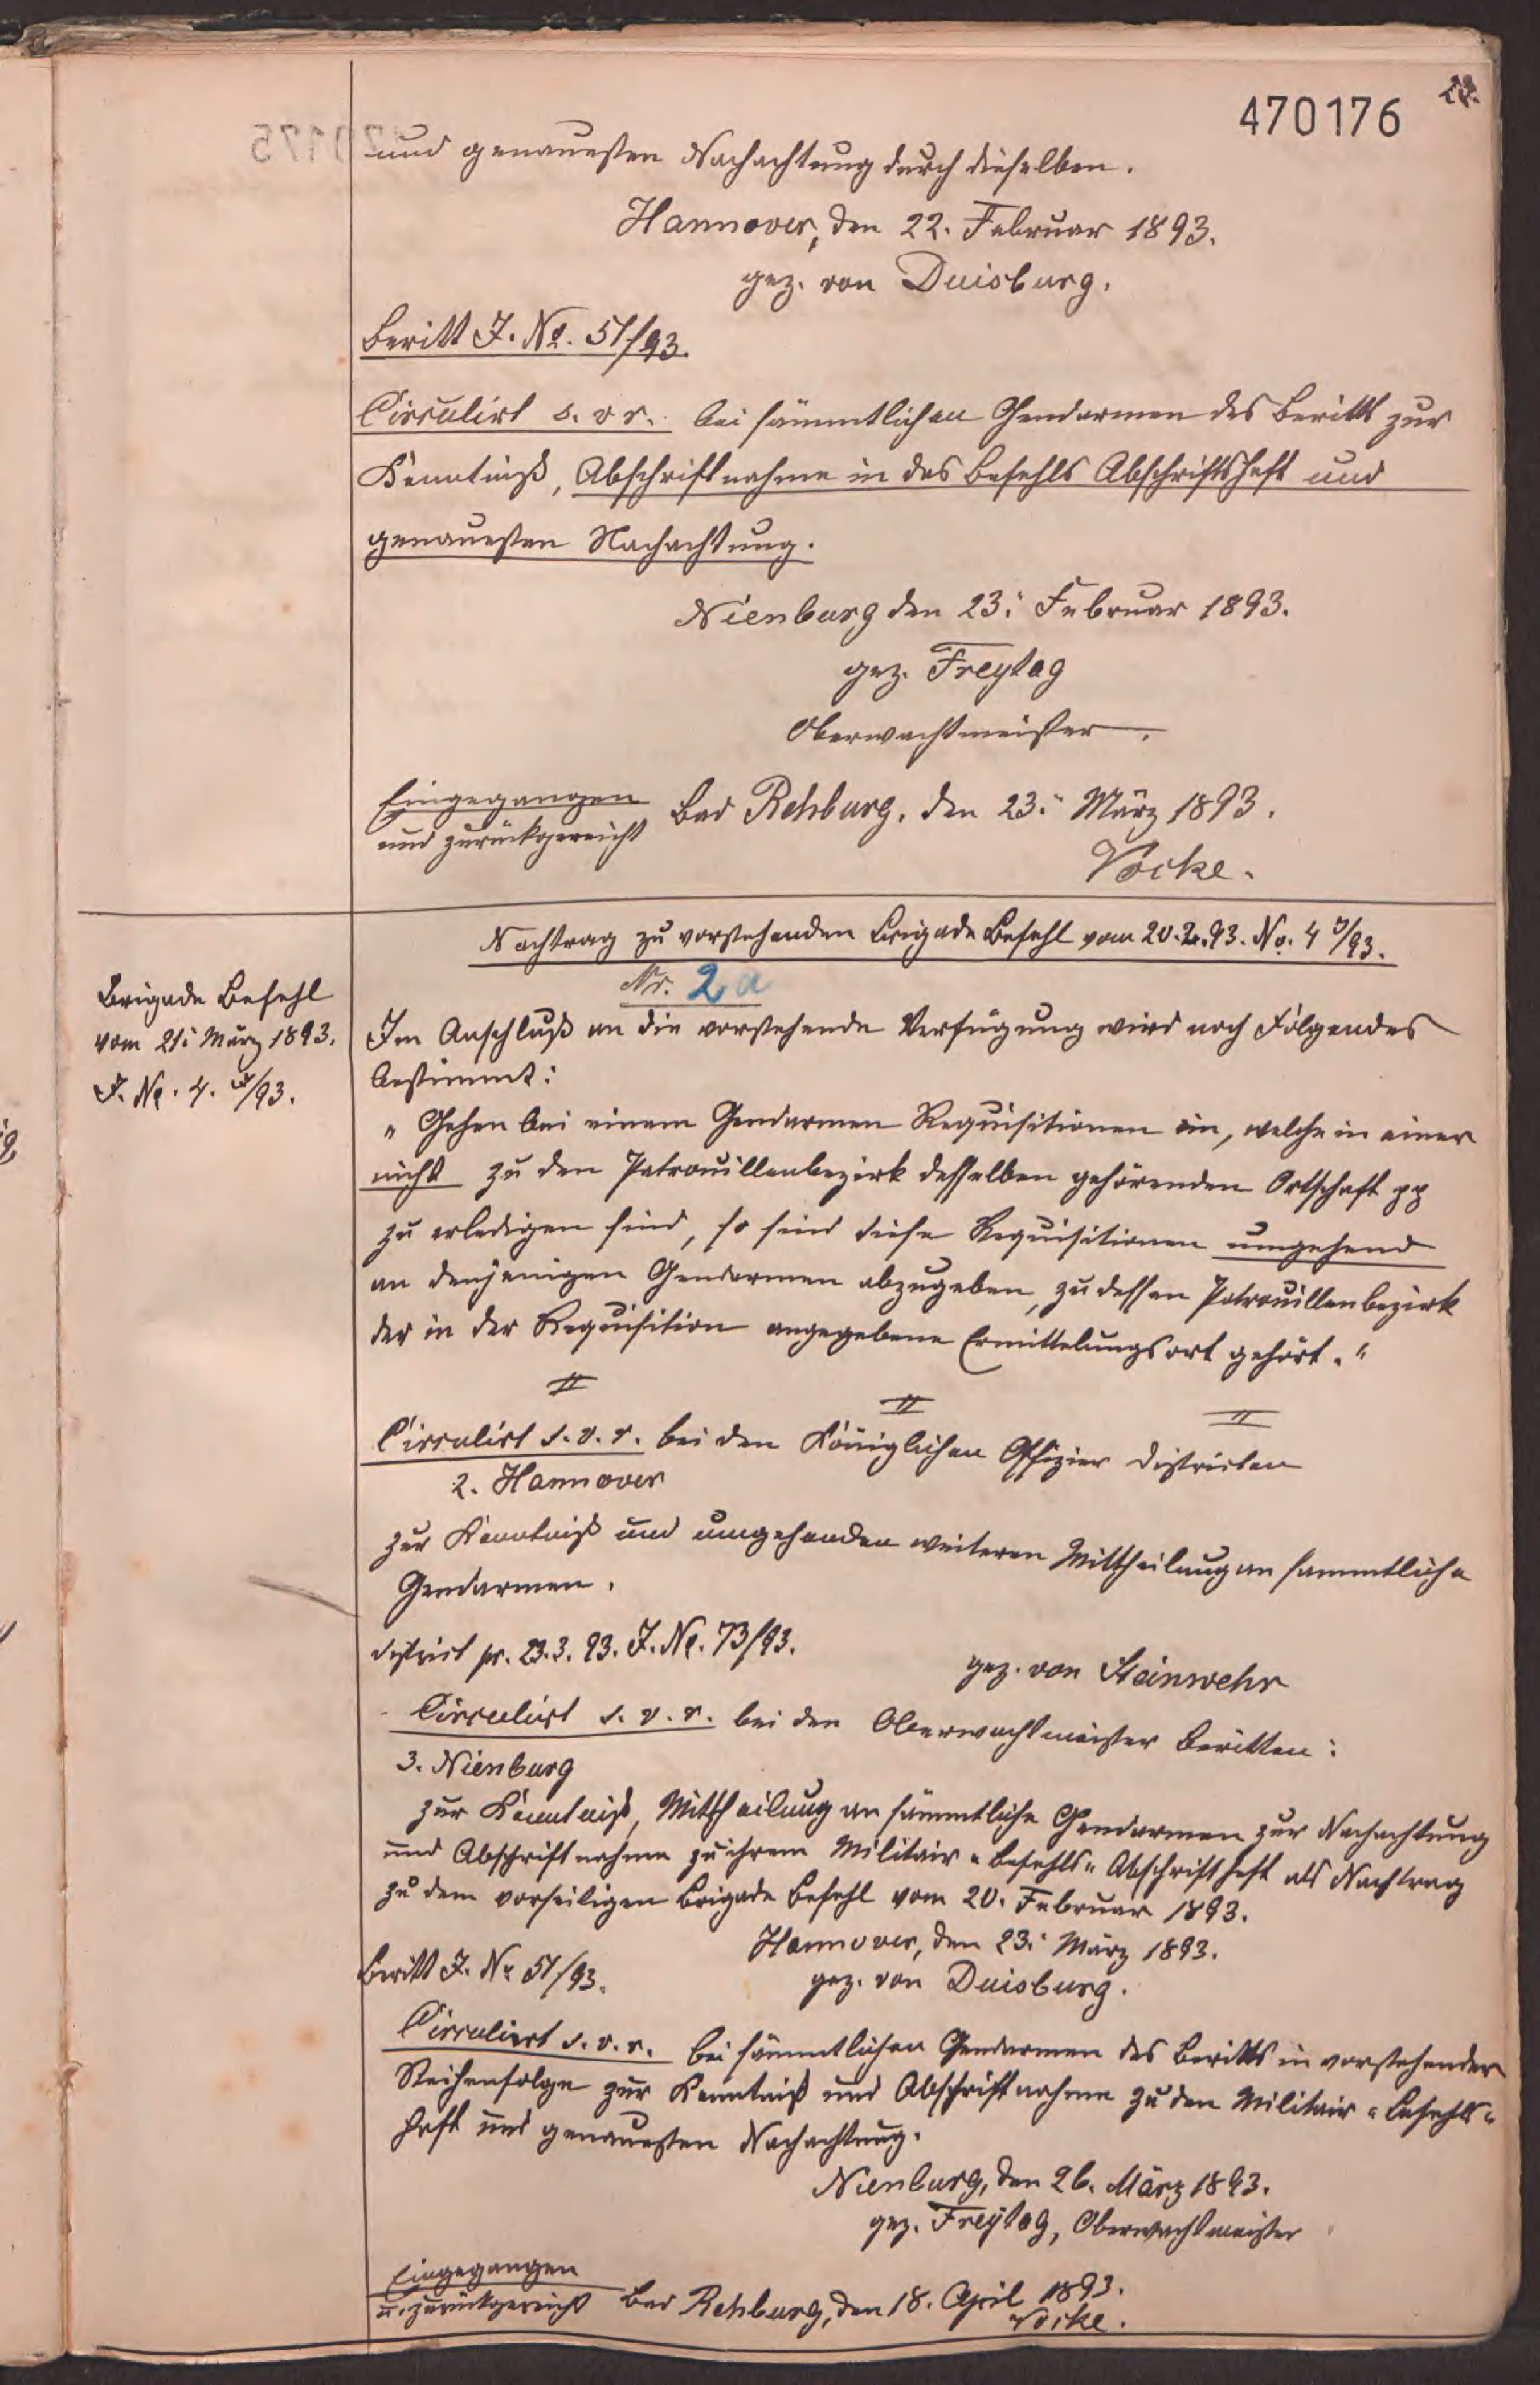 470176
und genauesten Nachachtung durch dieselben.
Hannover, den 22. Februar 1893.
gez. von Duisburg.
Beritt J. No. 51/93.
Circulirt s. v. r. bei sämmtlichen Gendarmen des Beritts zur
Kenntniß, Abschriftnahme in das Befehls Abschriftsheft und
genauesten Nachachtung.
Nienburg den 23. Februar 1893.
gez. Freytag
Oberwachtmeister.
Eingegangen
und zurückgereicht
Bad Rehburg, den 23. März 1893.
Vocke.
Nachtrag zu vorstehenden Brigade Befehl vom 20.2.93. No. 4 /93.
Nr. 2a
Brigade Befehl
vom 21. März 1893.
J. No. 4. /93.
Im Anschluß an die vorstehende Verfügung wird noch Folgendes
bestimmt:
„Gehen bei einem Gendarmen Requisitionen ein, welche in einer
nicht zu den Patrouillenbezirk desselben gehörenden Ortschaft pp
zu erledigen sind, so sind diese Requisitionen umgehend
an denjenigen Gendarmen abzugeben, zu dessen Patrouillenbezirk
der in der Requisition angegebene Ermittelungsort gehört.“
Circulirt s. v. r. bei den Königlichen Offizier Districten
2. Hannover
zur Kenntniß und umgehenden weiteren Mittheilung an sammtliche
Gendarmen.
District pr. 23.3.93. J. No. 73/93.
gez. von Steinwehr
Circulirt s. v. r. bei den Oberwachtmeister Beritten:
3. Nienburg
zur Kenntniß, Mittheilung an sämmtliche Gendarmen zur Nachachtung
und Abschriftnahme zu ihrem Militair-Befehls-Abschriftheft als Nachtrag
zu dem vorseitigen Brigade Befehl vom 20. Februar 1893.
Hannover, den 23. März 1893.
gez. von Duisburg.
Beritt J. No 51/93.
Circulirt s. v. r. bei sämmtlichen Gendarmen des Beritts in vorstehender
Reihenfolge zur Kenntniß und Abschriftnahme zu den Militair-Befehls-
heft und genauesten Nachachtung.
Nienburg, den 26. März 1893.
gez. Freytag, Oberwachtmeister
Eingegangen
u. zurückgereicht
Bad Rehburg, den 18. April 1893.
Vocke.